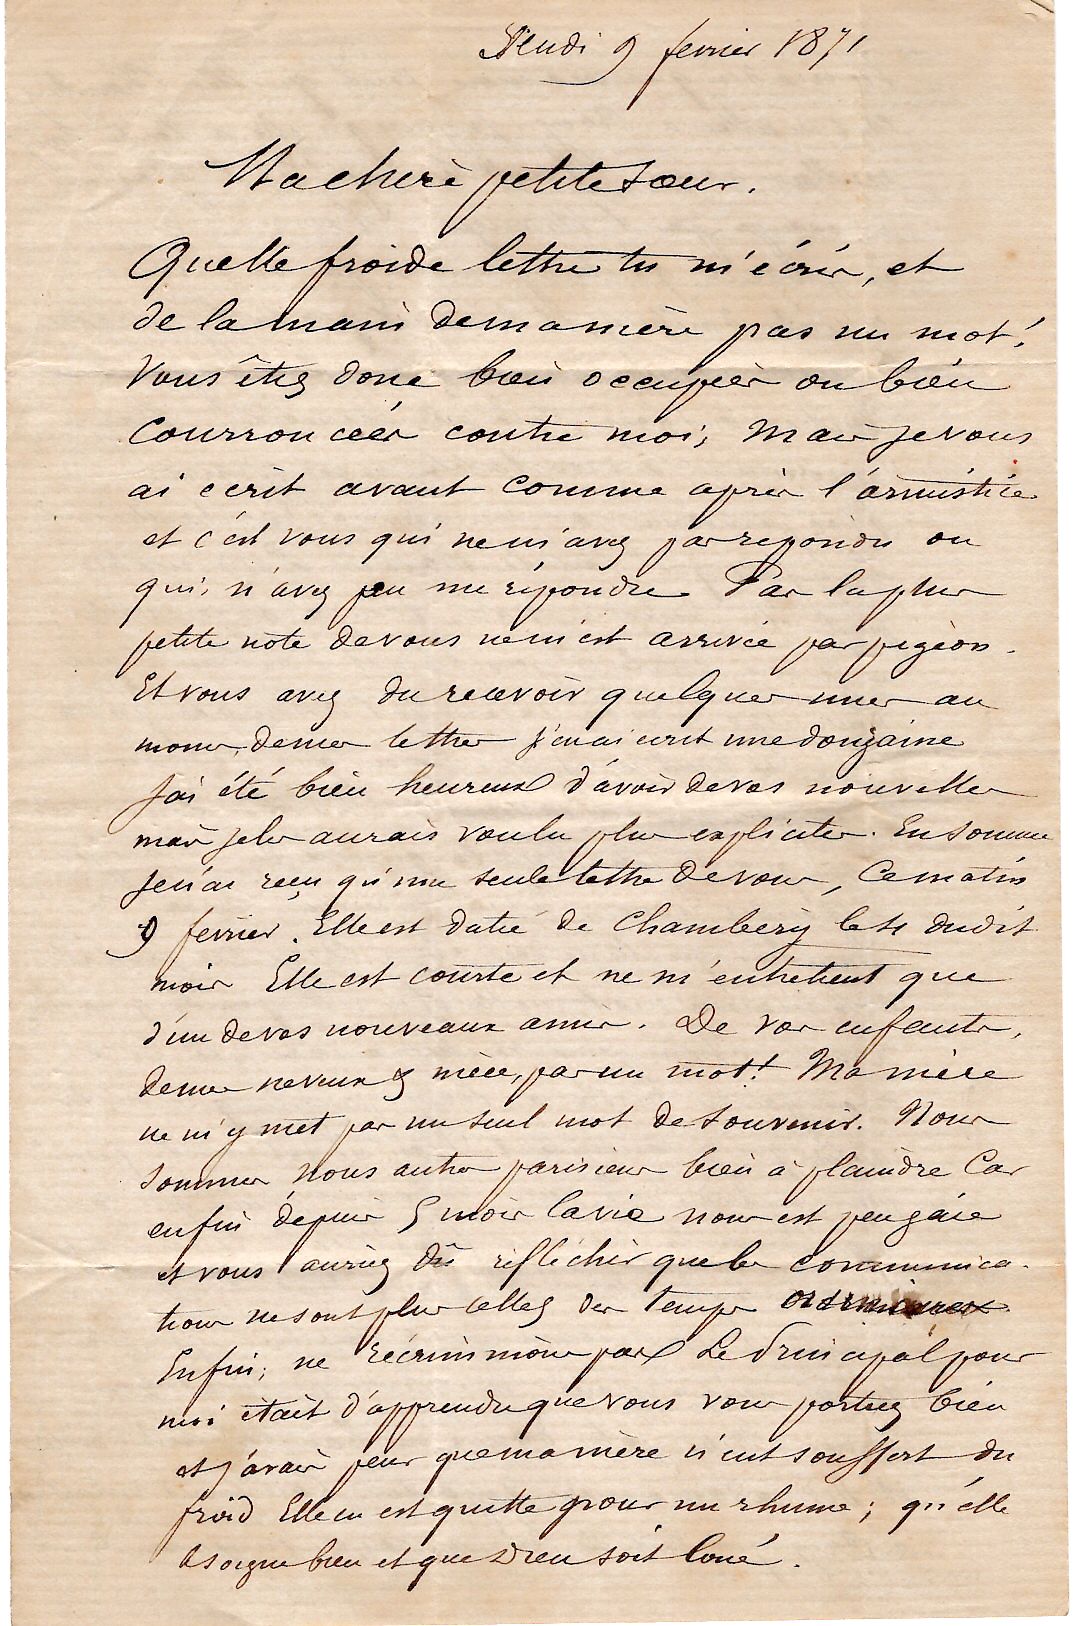 Jeudi 9 fevrier 1871
Ma chere petite soeur.
Quelle froide lettre tu m'écris, et
de la main de ma mère pas un mot!
Vous êtes donc bien occupées ou bien
courroucées contre moi, Mais je vous
ai ecrit avant comme après l'armistice
et c'est vous qui ne m'avez pas repondu ou
qui n'avez pu me répondre. Pas la plus
petite note de vous ne m'est arrivée par pigeon.
Et vous avez du recevoir quelques unes au
moins de mes lettres j'en ai ecrit une douzaine
J'ai été bien heureux d'avoir de vos nouvelles
mais je les aurais voulu plus explicites. En somme
je n'ai reçu qu'une seule lettre de vous, Ce matin
9 fevrier. Elle est datée de Chambéry le 4 dudit
mois Elle est courte et ne m'entretient que
d'un de vos nouveaux amis. De vos enfants,
de mes neveux & nièce, pas un mot! Ma mère
ne m'y met pas un seul mot de souvenir. Nous
sommes nous autres parisiens bien à plaindre Car
enfin depuis 5 mois la vie nous est peu gaie
et vous auriez dû réfléchir que les communica-
tions ne sont plus celles des temps ordinaires
Enfin, ne récriminons pas Le Principal pour
moi était d'apprendre que vous vous portiez bien
et j'avais peur que ma mère n'eut souffert du
froid Elle en est quitte pour un rhume; qu'elle
se soigne bien et que Dieu soit loué.